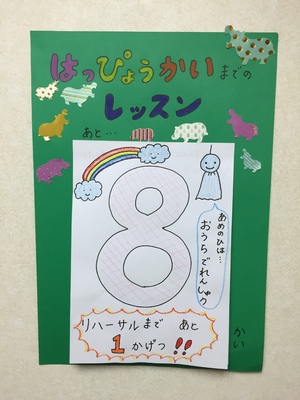 はっぴょうかいまでの
レッスン
あと…
8
あめのひは…
おうちでれんしゅう
リハーサルまで あと
1かげつ!!
かい